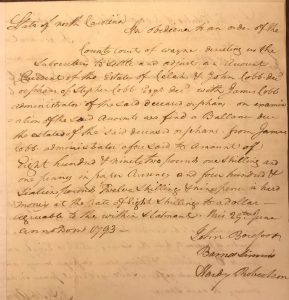 State of north Carolina
In obedience to an order of the
County court of wayne directing us the
Subscribers to Settle and adjust an Account
Current of the Estates of Celah & John Cobb decd
orphans of Stephen Cobb Esqr decd with James Cobb
administrator of the said deceased orphans, on examin
ation of the said Accounts we find a Ballance due
the estates of the said deceased orphans from James
Cobb administrator aforesaid To amount of
Eight hundred & ninetytwo pounds one shilling and
one penny in paper Currency and four hundred &
Sixteen pounds Twelve Shillings & ninepence in hard
money at the rate of Eight Shillings to a dollar
agreeable to the within Statement this 29th June
Anno Dom 1793
John Barfoot
Barna
Hardy Robertson